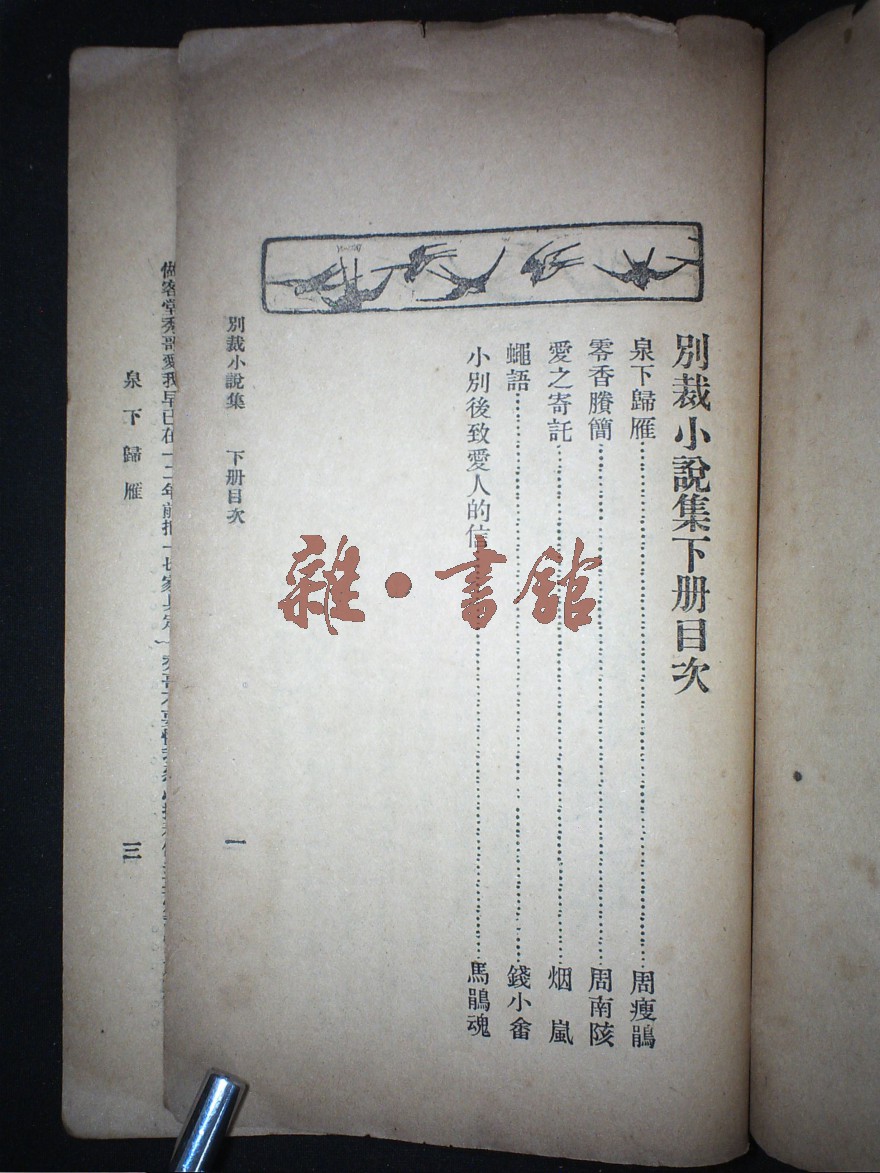 別裁小說集下册目次
泉下歸雁……周瘦鵑
零香賸簡……周南陔
愛之寄託……烟嵐
蠅語……錢小畬
小別後致愛人的信……馬鵑魂
別裁小說集 下册目次 一
做客堂秀哥愛我早已在一二年前
泉下歸雁 三
雜·書館